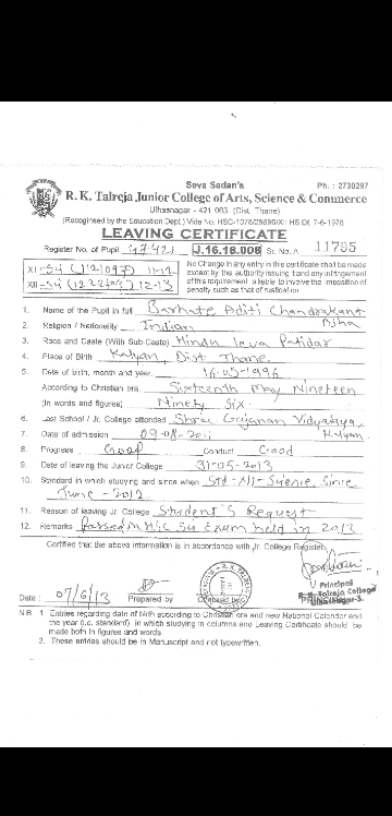 Seva Sadan's Ph. : 2730297
R. K. Talreja Junior College of Arts, Science & Commerce
Ulhasnagar - 421 003 (Dist. Thane)
(Recognised by the Education Dept.) Vide No. HSC-1076/ HS Dt. 7-6-1976
LEAVING CERTIFICATE
Register No. of Pupil 47421 J.16.18.006 Sr. No. A 11785
XI - S4 11-12
XII - S4 12-13
No Change in any entry in this certificate shall be made
except by the authority issuing it and any infringement
of this requirement is liable to involve the imposition of
penalty such as that of rustication
1. Name of the Pupil in full Barhate Aditi Chandrakant
2. Religion / Nationality Indian
3. Race and Caste (With Sub-Caste) Hindu Leva Patidar
4. Place of Birth Kalyan, Dist Thane
5. Date of birth, month and year, 16-05-1996
According to Christian era. Sixteenth May Nineteen
(In words and figures) Ninety Six.
6. Last School / Jr. College attended Shree Gajanan Vidyalaya,
Kalyan.
7. Date of admission 09-08-2011
8. Progress Good Conduct Good
9. Date of leaving the Junior College 31-05-2013
10. Standard in which studying and since when Std-XII-Science Since
June - 2012
11. Reason of leaving Jr. College Student's Request
12. Remarks Passed in HSC Sci Exam held in 2013
Certified that the above information is in accordance with Jr. College Register.
Principal
R. K. Talreja College
Ulhasnagar-3.
Date : 07/6/13 Prepared by
N.B. 1. Entries regarding date of birth according to Christian era and new National Calendar and
the year (i.e. standard) in which studying in columns one Leaving Certificate should be
made both in figures and words
2. These entries should be in Manuscript and not typewritten.